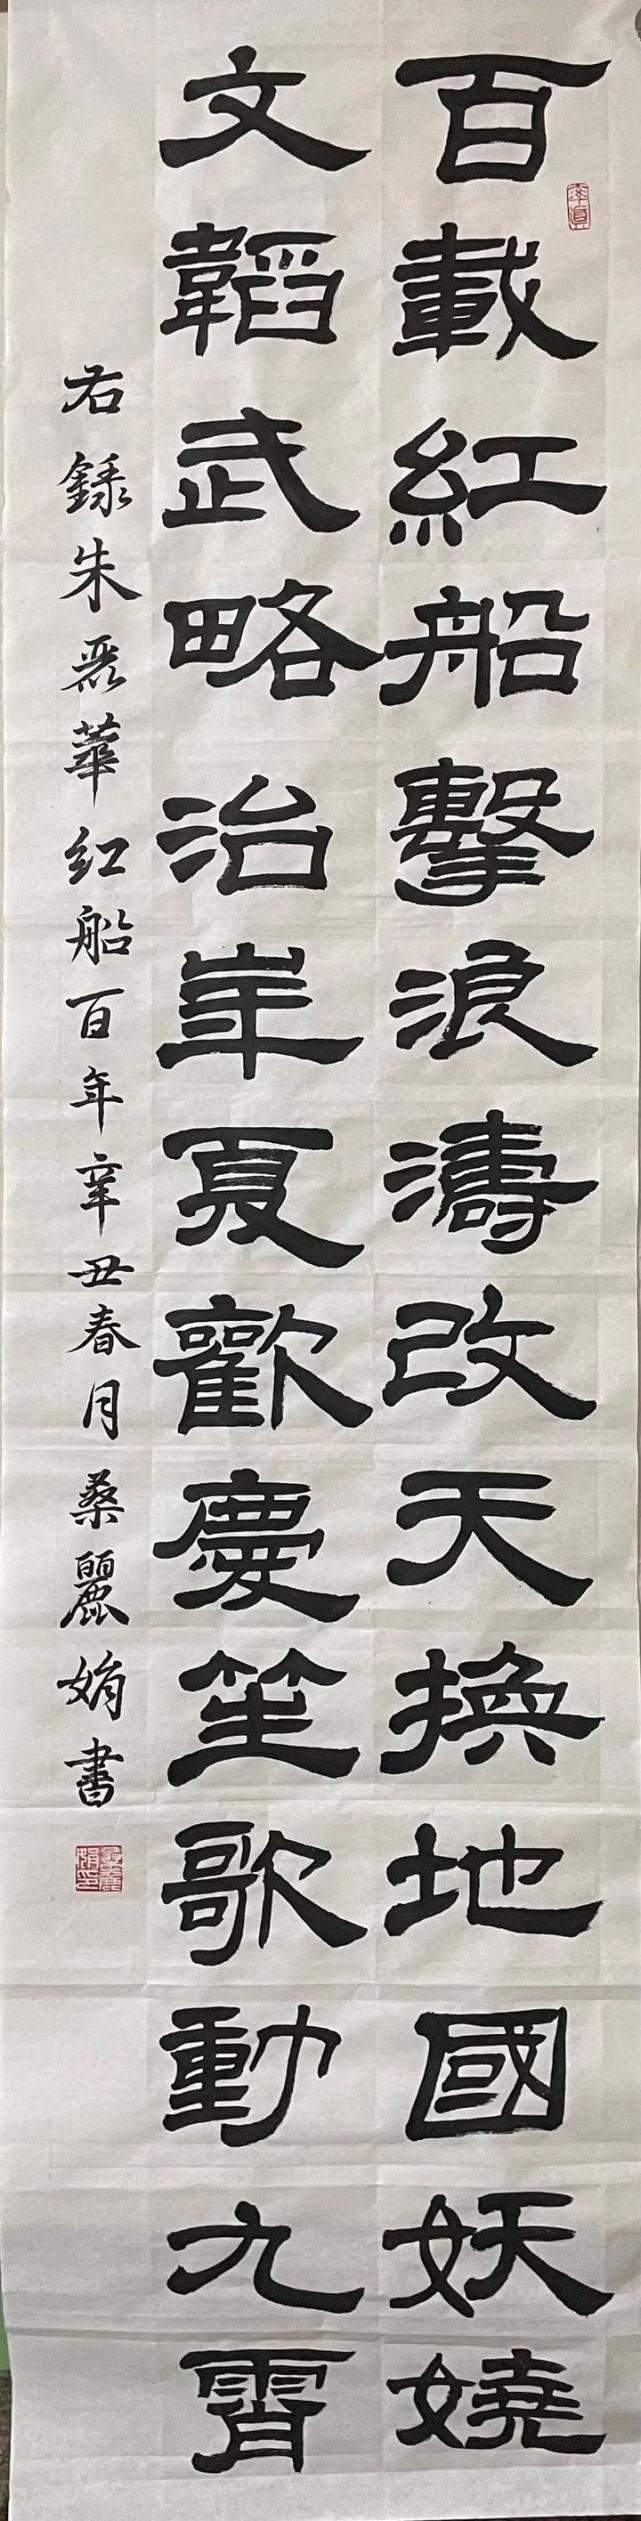 百載紅船擊浪濤改天換地國妖嬈
文韜武略治華夏歡慶笙歌動九霄
右錄朱惡華紅船百年辛丑春月桑麗娟書